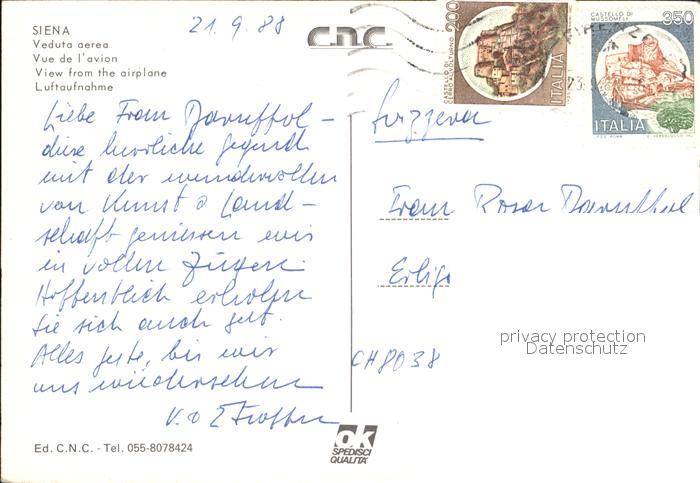 21.9.88
SIENA
Veduta aerea
Vue de l'avion
View from the airplane
Luftaufnahme
C.N.C.
200
CASTELLO DI CERRO AL VOLTURNO
ITALIA
CASTELLO DI MUSSOMELI
350
ITALIA
FIRENZE
Liebe Frau
diese herrliche Gegend
mit der wundervollen
von Kunst & Land-
schaft geniessen wir
in vollen Zügen.
Hoffentlich erholen
Sie sich auch gut.
Alles gute, bis wir
uns wiedersehen
V. & E.
Svizzera
Frau Rosa
CH 8038
privacy protection
Datenschutz
Ed. C.N.C. - Tel. 055-8078424
ok
SPEDISCI
QUALITÀ